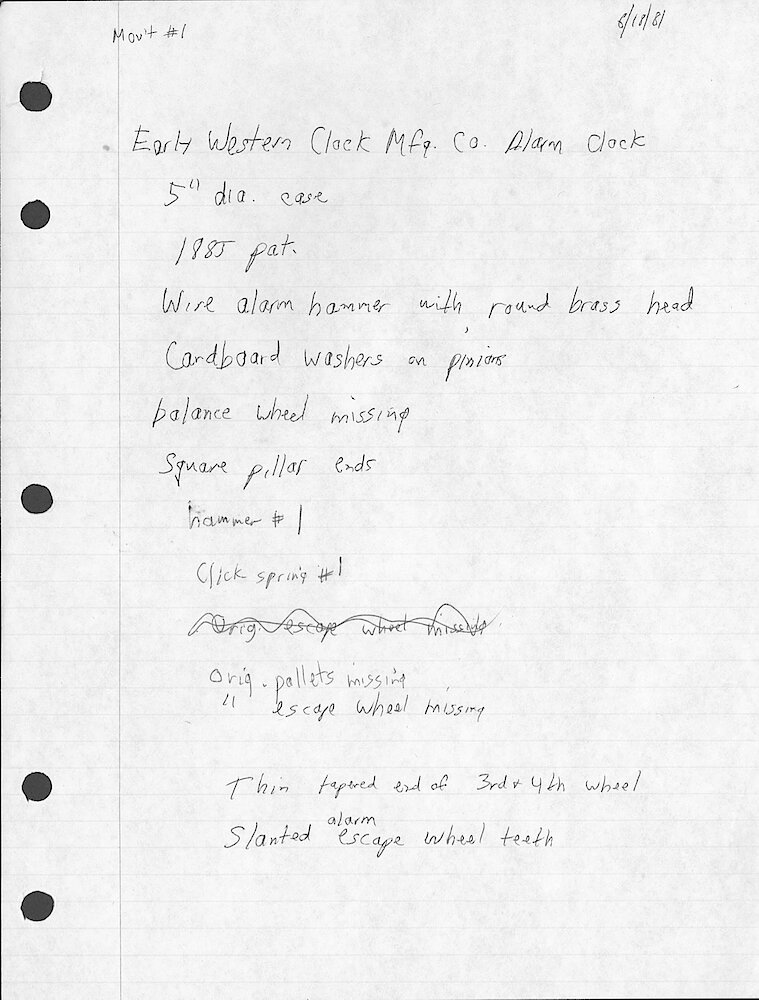 Mov't #1
8/18/81
Early Western Clock Mfg. Co. Alarm Clock
5" dia. case
1885 pat.
Wire alarm hammer with round brass head
Cardboard washers on pinions
balance wheel missing
Square pillar ends
hammer #1
Click spring #1
Orig. escape wheel missing
Orig. pallets missing
" escape wheel missing
Thin tapered end of 3rd + 4th wheel
alarm
Slanted escape wheel teeth